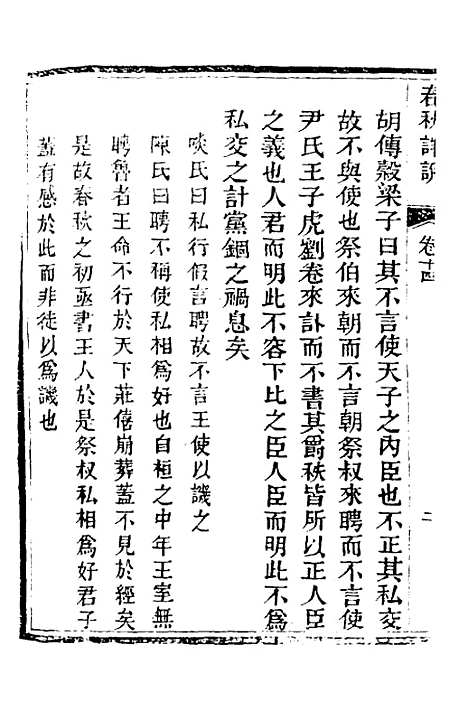 春秋詳說
卷十四
二
胡傳穀梁子曰其不言使天子之內臣也不正其私交
故不與使也祭伯來朝而不言朝祭叔來聘而不言使
尹氏王子虎劉卷來訃而不書其爵秩皆所以正人臣
之義也人君而明此不容下比之臣人臣而明此不為
私交之計黨錮之禍息矣
啖氏曰私行假言聘故不言王使以譏之
陳氏曰聘不稱使私相為好也自桓之中年王室無
聘魯者王命不行於天下莊僖崩葬蓋不見於經矣
是故春秋之初亟書王人於是祭叔私相為好君子
蓋有感於此而非徒以為譏也